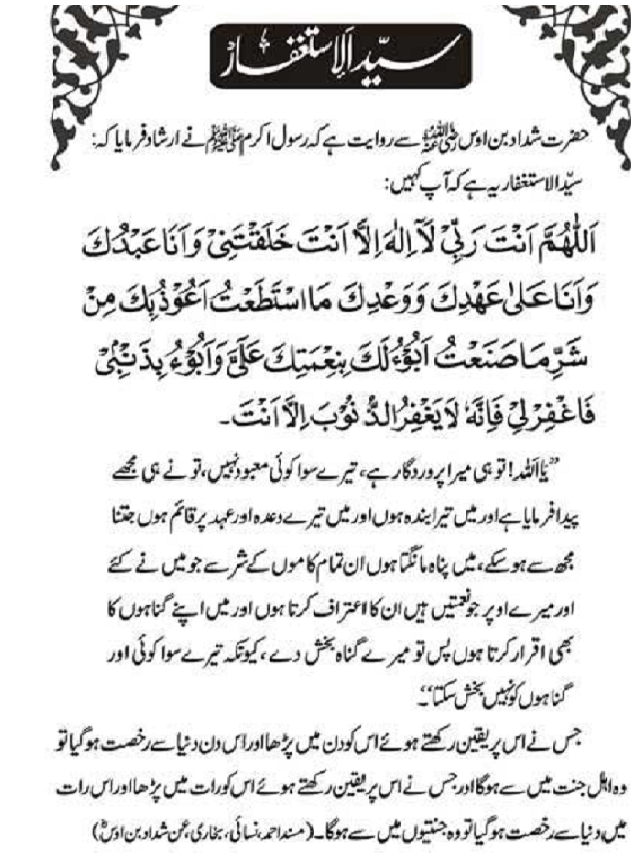 سیّد الاستغفار
حضرت شداد بن اوس رضی اللہ عنہ سے روایت ہے کہ رسول اکرم ﷺ نے ارشاد فرمایا کہ:
سیّد الاستغفار یہ ہے کہ آپ کہیں:
اَللّٰهُمَّ اَنْتَ رَبِّیْ لَآ اِلٰهَ اِلَّا اَنْتَ خَلَقْتَنِیْ وَاَنَا عَبْدُكَ
وَاَنَا عَلٰی عَهْدِكَ وَوَعْدِكَ مَا اسْتَطَعْتُ اَعُوْذُ بِكَ مِنْ
شَرِّ مَا صَنَعْتُ اَبُوْءُ لَكَ بِنِعْمَتِكَ عَلَیَّ وَاَبُوْءُ بِذَنْبِیْ
فَاغْفِرْ لِیْ فَاِنَّهٗ لَا یَغْفِرُ الذُّنُوْبَ اِلَّا اَنْتَ۔
”یا اللہ! تو ہی میرا پروردگار ہے، تیرے سوا کوئی معبود نہیں، تو نے ہی مجھے
پیدا فرمایا ہے اور میں تیرا بندہ ہوں اور میں تیرے وعدہ اور عہد پر قائم ہوں جتنا
مجھ سے ہو سکے، میں پناہ مانگتا ہوں ان تمام کاموں کے شر سے جو میں نے کئے
اور میرے اوپر جو نعمتیں ہیں ان کا اعتراف کرتا ہوں اور میں اپنے گناہوں کا
بھی اقرار کرتا ہوں پس تو میرے گناہ بخش دے، کیونکہ تیرے سوا کوئی اور
گناہوں کو نہیں بخش سکتا“۔
جس نے اس پر یقین رکھتے ہوئے اس کو دن میں پڑھا اور اس دن دنیا سے رخصت ہو گیا تو
وہ اہل جنت میں سے ہوگا اور جس نے اس پر یقین رکھتے ہوئے اس کو رات میں پڑھا اور اس رات
میں دنیا سے رخصت ہو گیا تو وہ جنتیوں میں سے ہوگا۔ (مسند احمد، نسائی، بخاری، عن شداد بن اوسؓ)